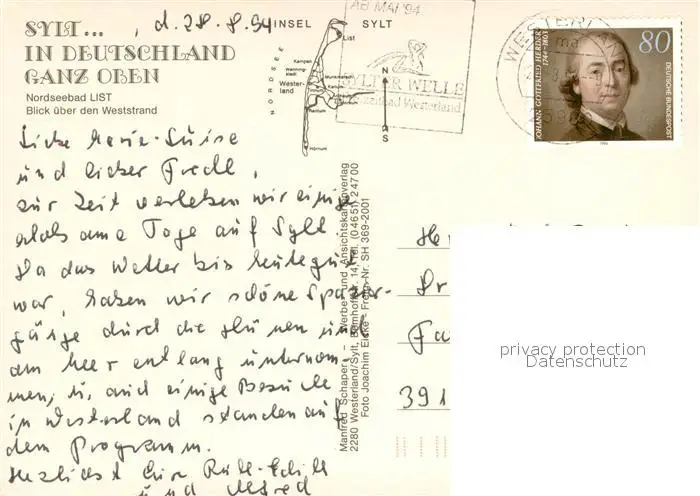 SYLT...
IN DEUTSCHLAND
GANZ OBEN
Nordseebad LIST
Blick über den Weststrand
, d. 28.8.94
INSEL SYLT
NORDSEE
List
Kampen
Westerland
Rantum
Hörnum
N
S
AB MAI '94
SYLTER WELLE
Westerland
80
JOHANN GOTTFRIED HERDER
1744-1803
DEUTSCHE BUNDESPOST
Liebe Marie-Luise
und lieber Fredl,
zur Zeit verleben wir einige
erholsame Tage auf Sylt.
Da das Wetter bis heute gut
war, haben wir schöne Spazier-
gänge durch die Dünen und
am Meer entlang unternom-
men, u. auch einige Besuche
in Westerland standen auf
dem Programm.
Herzlichst Eure Ruth-Edith
und Alfred
Manfred Schaper – Werbe- und Ansichtskartenverlag
2280 Westerland/Sylt, Bahnhofstr. 14, Tel. (04651) 24700
Foto Joachim Eicke – Freig.-Nr. SH 369-2001
391
privacy protection
Datenschutz